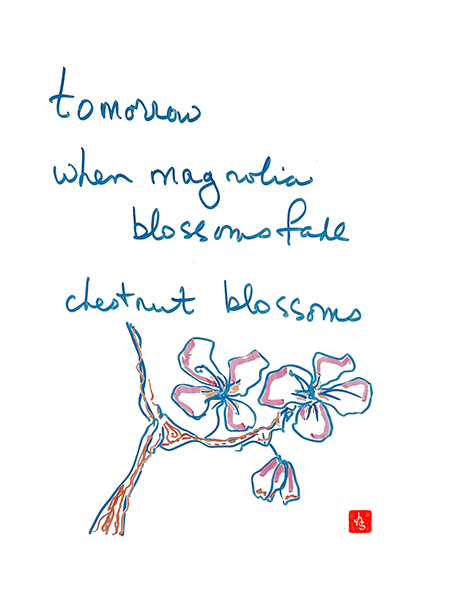 tomorrow
when magnolia
blossoms fade
chestnut blossoms